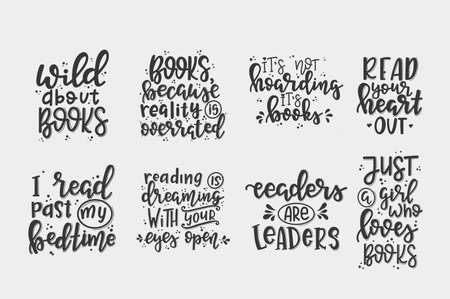 wild
about
BOOKS
BOOKS,
because
reality IS
overrated
IT'S NOT
hoarding
IT'S
books
READ
your
heart
OUT
I read
PAST my
bedtime
reading IS
DREAMING
WITH YOUR
eyes open
readers
ARE
LEADERS
JUST
a girl
WHO
loves
BOOKS